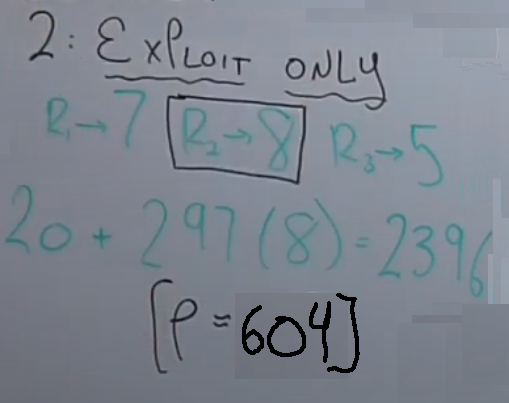 2: EXPLOIT ONLY
R₁→7 R₂→8 R₃→5
20 + 297(8) = 2396
[ρ = 604]